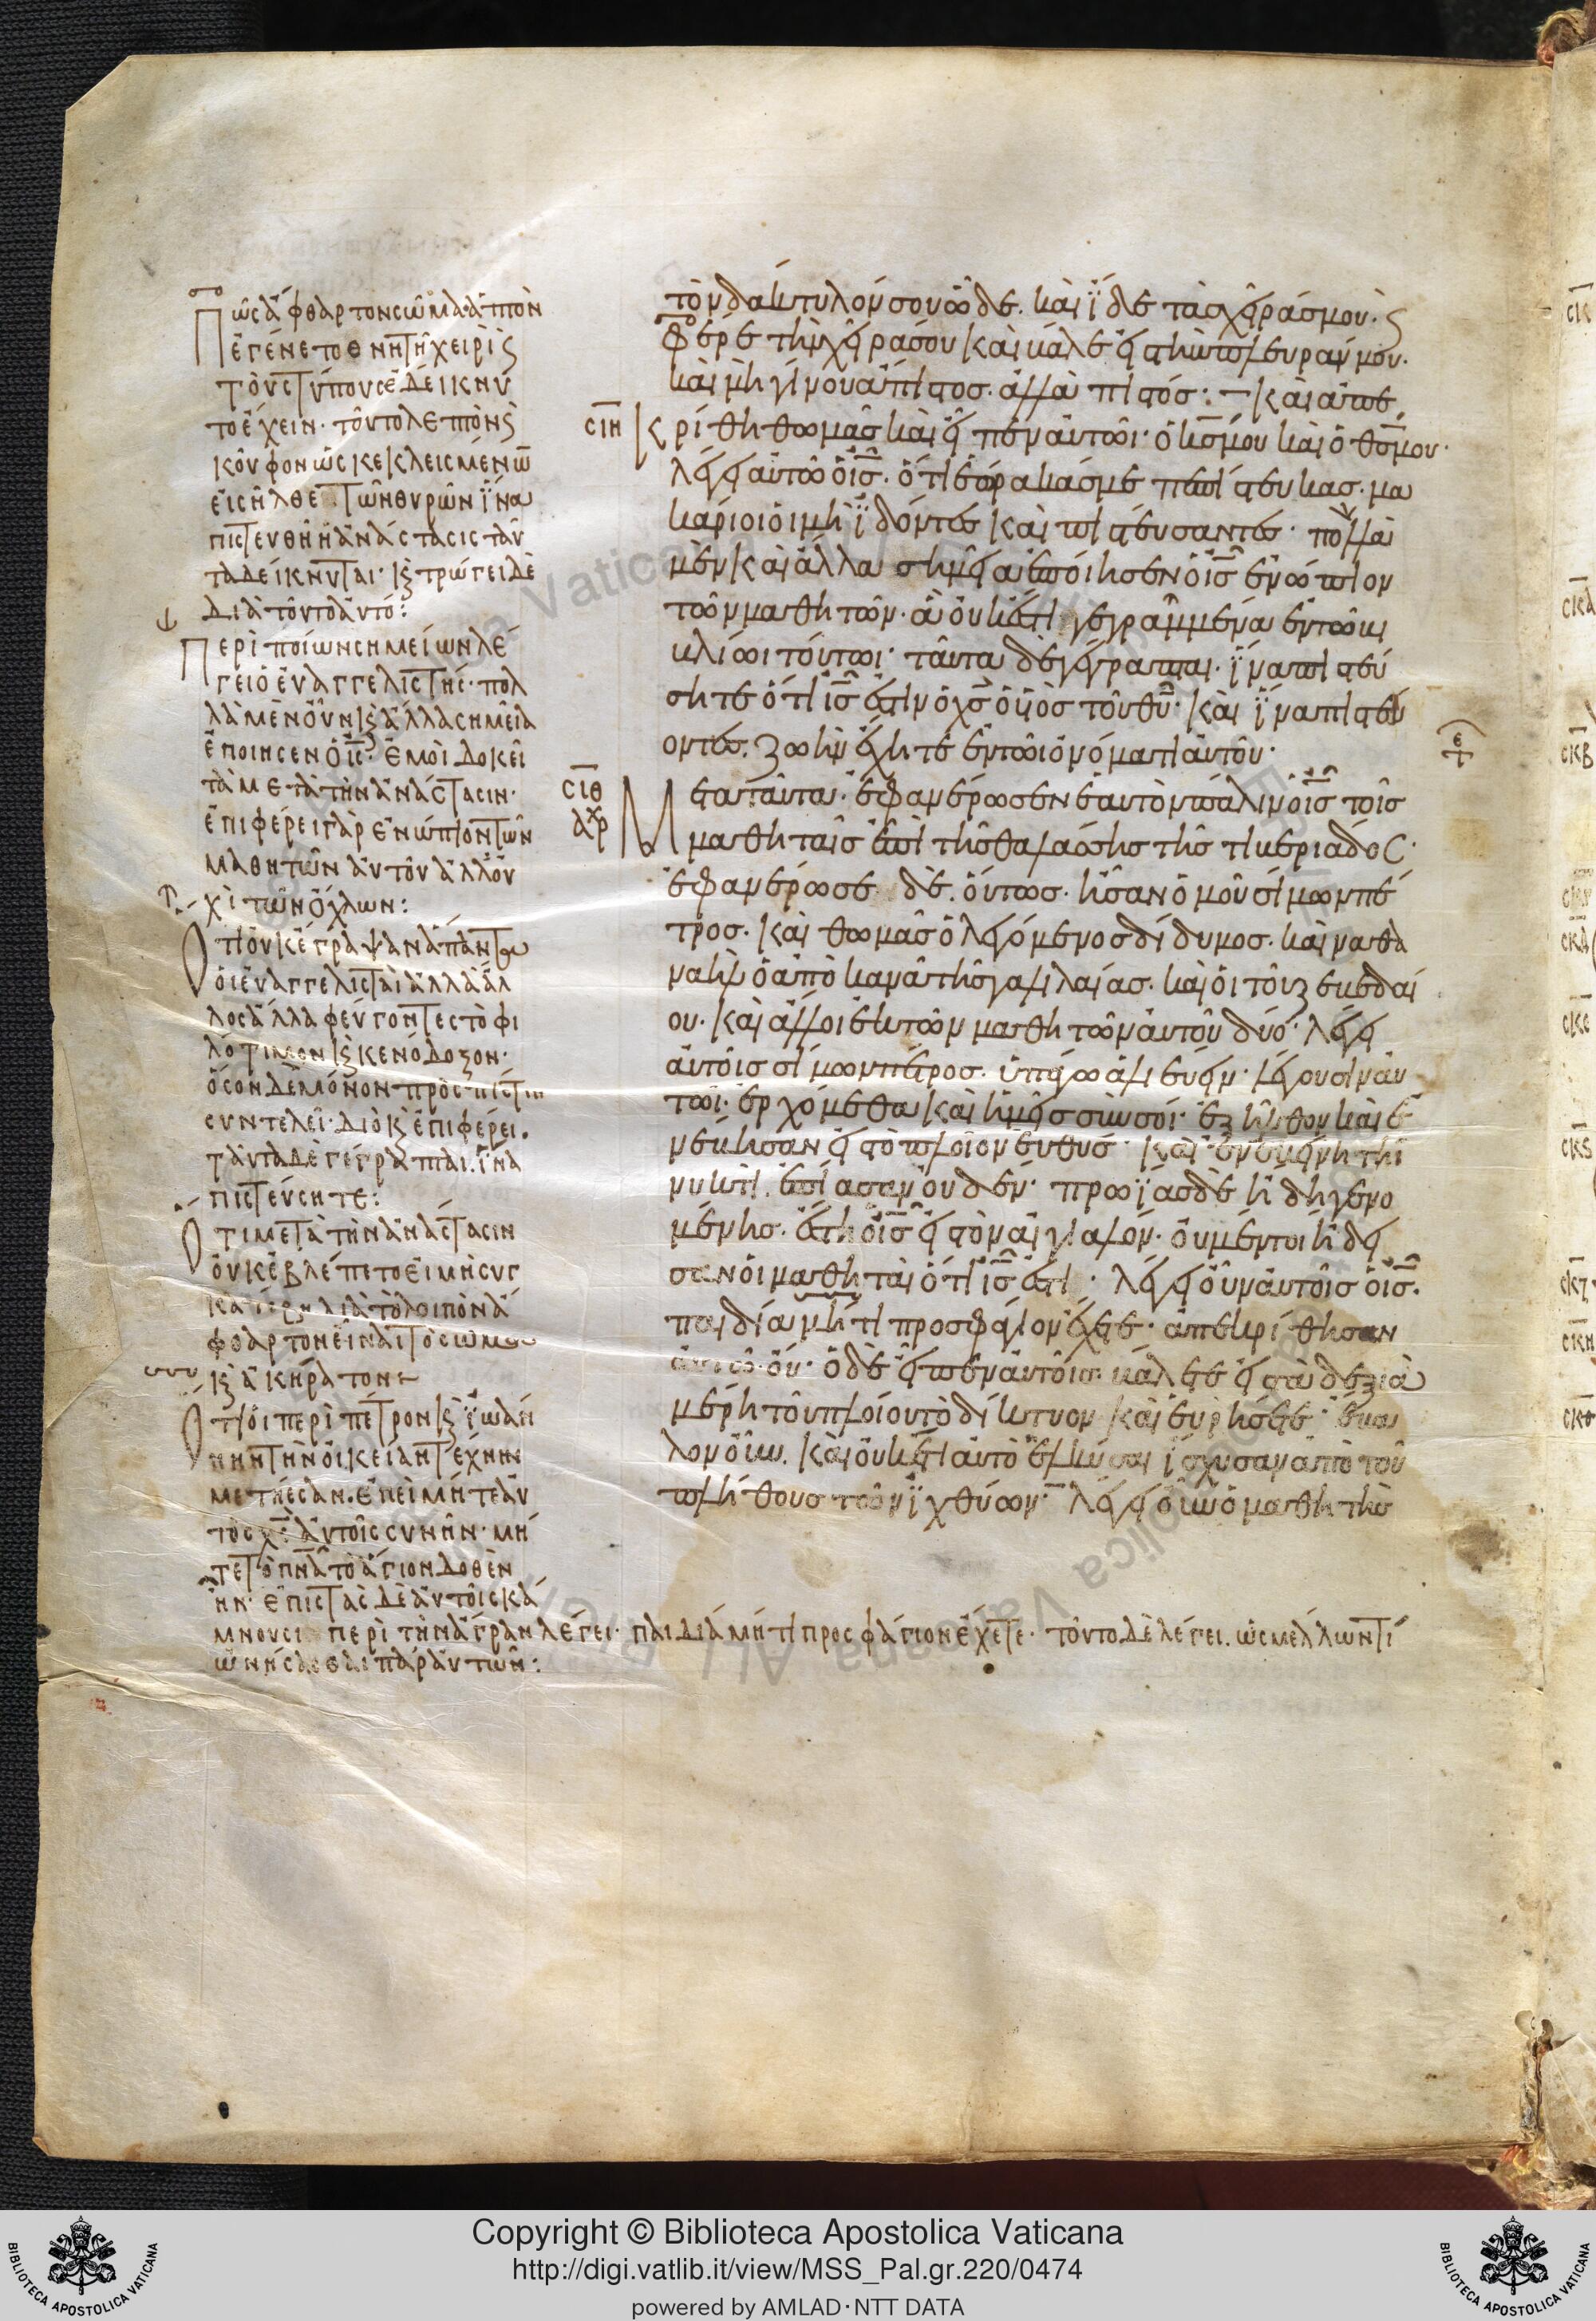 Πῶς ἄφθαρτον σῶμα ἁπτὸν
ἐγένετο θνητῆ χειρὶ ϛ
τοὺς τύπους ἐδείκνυ
το ἔχειν· τοῦτο λεπτὸν ϛ
κοῦφον ὡς κεκλεισμένω
εἰσῆλθε τῶν θυρῶν ἵνα
πιστευθῆ ἡ ἀνάστασις ταῦ
τα δείκνυται· ϗ τρώγει δὲ
διὰ τοῦτο αὐτό:
Περὶ ποίων σημείων λέ
γει ὁ εὐαγγελιστής· πολ
λὰ μὲν οὖν ϗ ἄλλα σημεῖα
ἐποίησεν ὁ ις· ἐμοὶ δοκεῖ
τὰ μετὰ τὴν ἀνάστασιν·
ἐπιφέρει γὰρ ἐνώπιον τῶν
μαθητῶν αὐτοῦ ἀλλ οὐ
χὶ τῶν ὄχλων:
Ὅτι οὐκ ἔγραψαν ἅπαντα
οἱ εὐαγγελισταὶ ἀλλὰ ἄλ
λος ἄλλα φεύγοντες τὸ φι
λότιμον ϗ κενόδοξον·
ὅσον δὲ μόνον πρὸς πίστιν
συντελεῖ· διὸ ϗ ἐπιφέρει.
ταῦτα δὲ γέγραπται. ἵνα
πιστεύσητε:
Ὅτι μετὰ τὴν ἀνάστασιν
οὐκ ἐβλέπετο εἰ μὴ συγ
κατέβη διὰ τὸ λοιπὸν ἄ
φθαρτον εἶναι τὸ σῶμα
ϗ ἀκήρατον
Ὅτι οἱ περὶ πέτρον ϗ ἰωάν
νην τὴν οἰκείαν τέχνην
μετήεσαν. ἐπεὶ μήτε αὐ
τὸς χς αὐτοῖς συνῆν· μή
τε τὸ πνα τὸ ἅγιον δοθὲν
ἦν· ἐπιστὰς δὲ αὐτοῖς κά
μνουσι περὶ τὴν ἄγραν λέγει· παιδία μή τι προσφάγιον ἔχετε· τοῦτο δὲ λέγει. ὡς μέλλων τί
ὠνήσασθαι παρ αὐτῶν:
τὸν δάκτυλόν σου ὧδε. καὶ ἴδε τὰς χεῖράς μου· ϛ
φέρε τὴν χεῖρά σου καὶ βάλε εἰς τὴν πλευράν μου.
καὶ μὴ γίνου ἄπιστος. ἀλλὰ πιστός:– καὶ ἀπε
σιη κρίθη θωμᾶς καὶ εἶπεν αὐτῶι· ὁ κς μου καὶ ὁ θς μου·
λέγει αὐτῶ ὁ ις. ὅτι ἑώρακάς με πεπίστευκας. μα
κάριοι οἱ μὴ ἰδόντες καὶ πιστεύσαντες· πολλὰ
μὲν καὶ ἄλλα σημεῖα ἐποίησεν ὁ ις ἐνώπιον
τῶν μαθητῶν. ἃ οὐκ ἔστι γεγραμμένα ἐν τῶ βι
βλίωι τούτωι· ταῦτα δὲ γέγραπται. ἵνα πιστεύ
σητε ὅτι ις ἐστιν ὁ χς ὁ υἱὸς τοῦ θυ· καὶ ἵνα πιστεύ
οντες. ζωὴν ἔχητε ἐν τῶι ὀνόματι αὐτοῦ·
σιθ Μετὰ ταῦτα. ἐφανέρωσεν ἑαυτὸν πάλιν ὁ ις τοῖς
αρχ μαθηταῖς ἐπὶ τῆς θαλάσσης τῆς τιβεριάδος·
ἐφανέρωσε δὲ. οὕτως. ἦσαν ὁμοῦ σίμων πέ
τρος. καὶ θωμᾶς ὁ λεγόμενος δίδυμος. καὶ ναθα
ναὴλ ὁ ἀπὸ κανᾶ τῆς γαλιλαίας. καὶ οἱ τοῦ ζεβεδαί
ου. καὶ ἄλλοι ἐκ τῶν μαθητῶν αὐτοῦ δύο· λέγει
αὐτοῖς σίμων πέτρος. ὑπάγω ἁλιεύειν· λέγουσιν αὐ
τῶι· ἐρχόμεθα καὶ ἡμεῖς σὺν σοί· ἐξῆλθον καὶ ἐ
νέβησαν εἰς τὸ πλοῖον εὐθύς· καὶ ἐν ἐκείνη τῆ
νυκτὶ ἐπίασαν οὐδέν· πρωΐας δὲ ἤδη γενο
μένης. ἔστη ὁ ις εἰς τὸν αἰγιαλόν. οὐ μέντοι ἤδει
σαν οἱ μαθηταὶ ὅτι ις ἐστι· λέγει οὖν αὐτοῖς ὁ ις.
παιδία μή τι προσφάγιον ἔχετε· ἀπεκρίθησαν
αὐτῶ. οὔ· ὁ δὲ εἶπεν αὐτοῖς βάλετε εἰς τὰ δεξιὰ
μέρη τοῦ πλοίου τὸ δίκτυον καὶ εὑρήσετε· ἔβα
λον οὖν. καὶ οὐκέτι αὐτὸ ἑλκύσαι ἴσχυσαν ἀπὸ τοῦ
πλήθους τῶν ἰχθύων· λέγει οὖν ὁ μαθητὴς